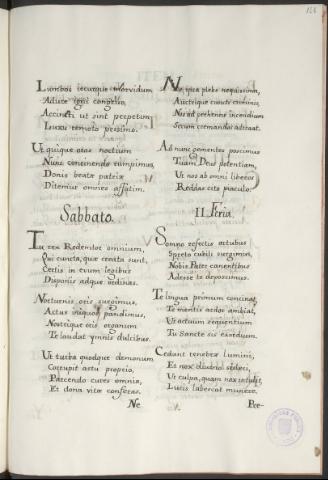 Lumbos iecurque morbidum
Adure igni congruo,
Accincti ut sint perpetim,
Luxu remoto pessimo.
Ut quique oras noctium
Nunc concinendo rumpimus,
Donis beatæ patriæ
Ditemur omnes affatim.
Sabbato.
Tu rex Redemtor omnium,
Qui cuncta, quæ creata sunt,
Certis in ævum legibus
Disponis adque ordinas.
Nocturnis oris surgimus,
Actus pandimus,
Nostrique oris organum
Te laudat ymnis dulcibus.
Ut tetra quodque demonum
Corrupit astu proprio,
Parcendo cures omnia,
Et dona vitæ conferas.
Ne
Ne ipsa plebs nequissima,
Auctrixque cuncti criminis,
Nos ad perhenne incendium
Secum cremandos adtraat.
Ab hunc gementes poscimus
Tuam Deus potentiam,
Ut nos ab omni liberos
Reddas cito piaculo.
II. Feria.
Somno refectis artubus
Spreto cubili surgimus,
Nobis Pater canentibus
Adesse te deposcimus.
Te lingua primum concinat,
Te mentis ardor ambiat,
Ut actuum sequentium
Tu Sancte sis exordium.
Cedant tenebræ lumini,
Et nox diurno sideri,
Ut culpa, quam nox intulit,
Lucis labescat munere.
Pre-